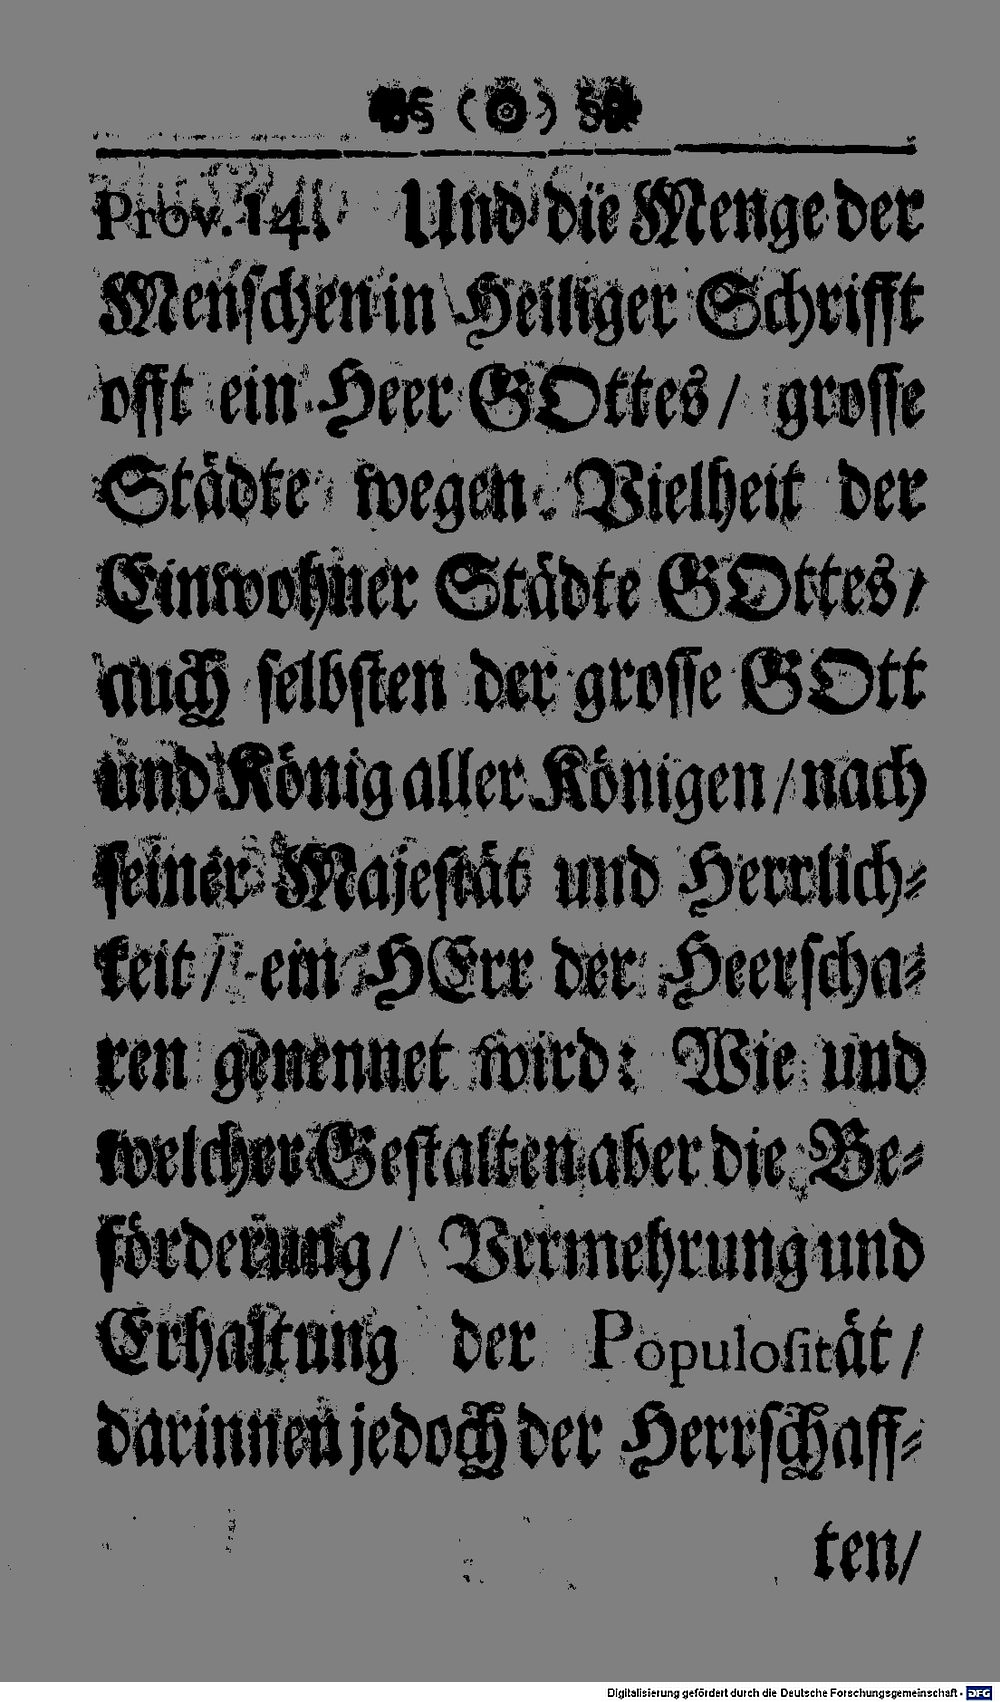 ( o )
Prov. 14. Und die Menge der
Menſchen in Heiliger Schrifft
offt ein Heer GOttes / groſſe
Städte wegen Vielheit der
Einwohner Städte GOttes /
auch ſelbſten der groſſe GOtt
und König aller Königen / nach
ſeiner Majeſtät und Herrlich⸗
keit / ein HErr der Heerſcha⸗
ren genennet wird: Wie und
welcher Geſtalten aber die Be⸗
förderung / Vermehrung und
Erhaltung der Populoſität /
darinnen jedoch der Herrſchaff⸗
ten /
Digitalisierung gefördert durch die Deutsche Forschungsgemeinschaft - DFG